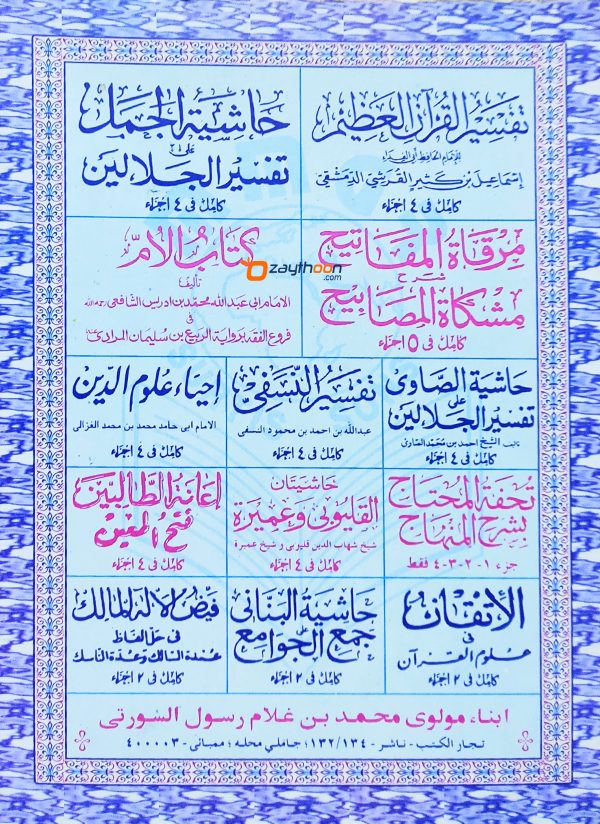 تفسير القرآن العظيم
للإمام الحافظ أبي الفداء
إسماعيل بن كثير القرشي الدمشقي
كامل في ٤ اجزاء
حاشية الجمل
على
تفسير الجلالين
كامل في ٤ اجزاء
مرقاة المفاتيح
شرح
مشكاة المصابيح
كامل في ٥ اجزاء
كتاب الأم
تأليف
الامام ابي عبد الله محمد بن ادريس الشافعي رحمه الله
في
فروع الفقه برواية الربيع بن سليمان المرادي
ozaythoon
.com
حاشية الصاوى
على
تفسير الجلالين
تأليف الشيخ احمد بن محمد الصاوى
كامل في ٤ اجزاء
تفسير النسفي
عبدالله بن احمد بن محمود النسفى
كامل في ٤ اجزاء
إحياء علوم الدين
الامام ابى حامد محمد بن محمد الغزالى
كامل في ٤ اجزاء
تحفة المحتاج
بشرح المنهاج
جزء ١-٢-٣-٤ فقط
حاشيتان
القليوبى وعميرة
شيخ شهاب الدين قليوبى و شيخ عميرة
كامل في ٤ اجزاء
إعانة الطالبين
فتح المعين
كامل في ٤ اجزاء
الإتقان
في
علوم القرآن
كامل في ٢ اجزاء
حاشية البنانى
على
جمع الجوامع
كامل في ٢ اجزاء
فيض الإله المالك
في حل الفاظ
عمدة السالك وعدة الناسك
كامل في ٢ اجزاء
ابناء مولوى محمد بن غلام رسول السورتى
تجار الكتب - ناشر - ١٣٢/١٣٤؛ جاملي محله؛ ممبائى - ٤٠٠٠٠٣